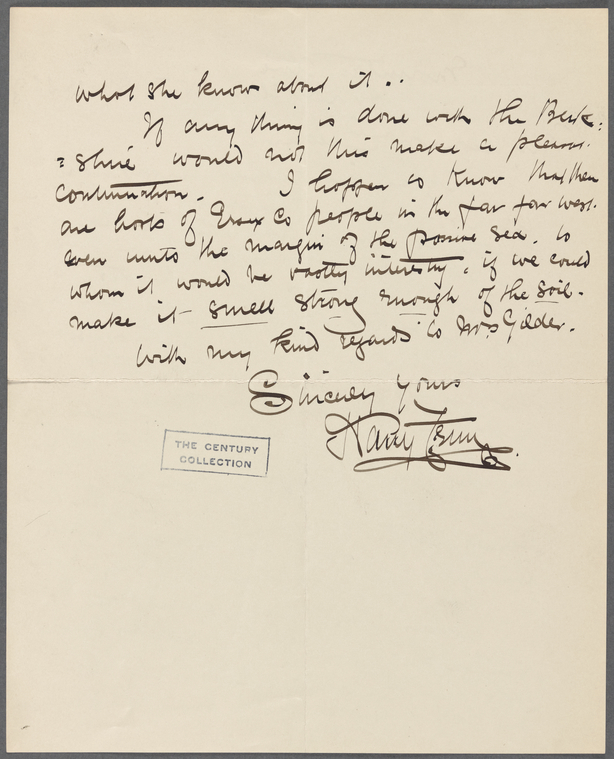 what she knows about it..
If any thing is done with the Berk=
=shire would not this make a pleasant
continuation. I happen to know that there
are lots of Essex Co people in the far far west.
even unto the margin of the sea. to
whom it would be vastly interesting. if we could
make it smell strong enough of the soil.
With my kind regards to Mrs Gilder.
Sincerely Yours
Harry Fenn
THE CENTURY
COLLECTION